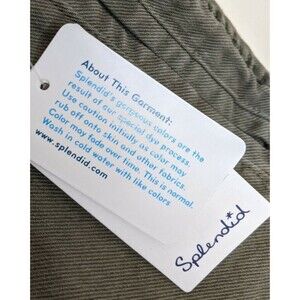 About This Garment:
Splendid's gorgeous colors are the
result of our special dye process.
Use caution initially as color may
rub off onto skin and other fabrics.
Color may fade over time. This is normal.
Wash in cold water with like colors.
www.splendid.com
Splendid